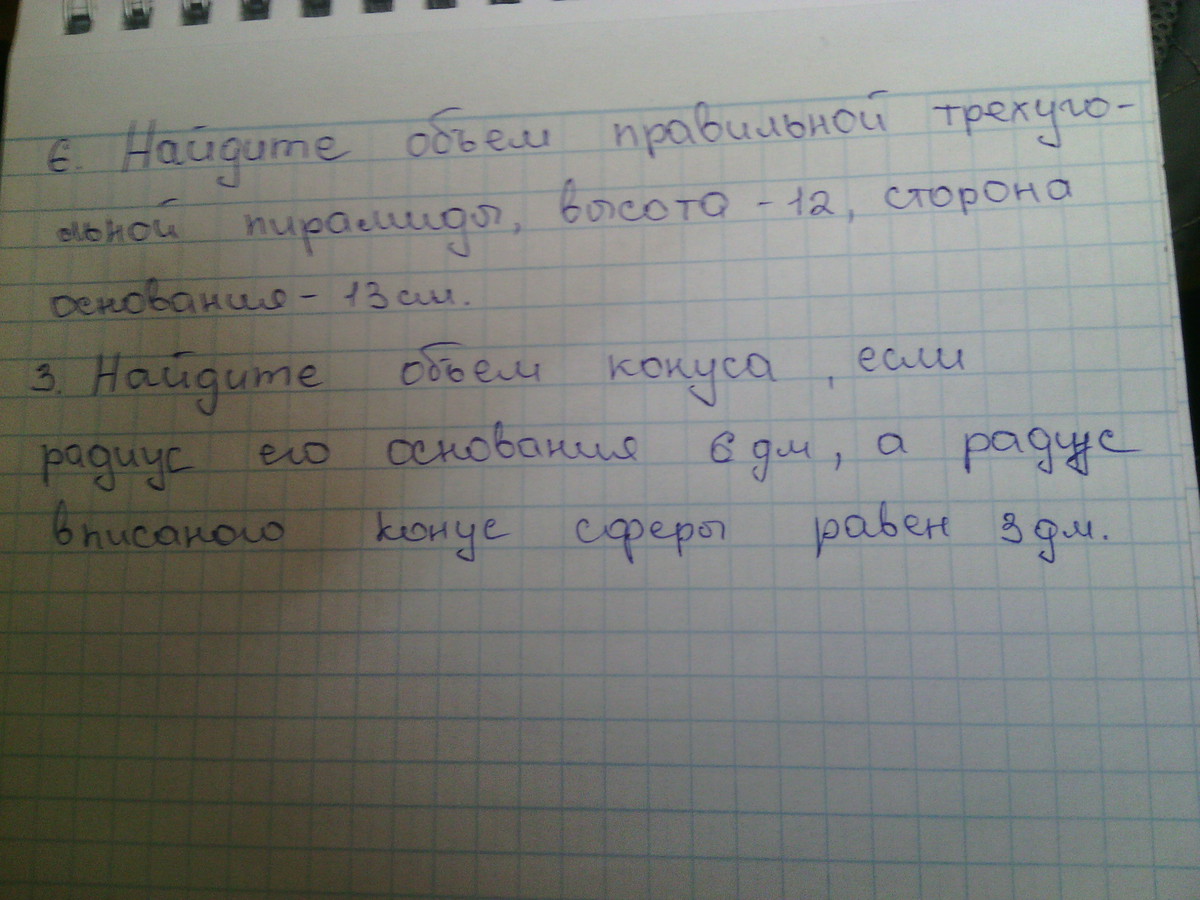 6. Найдите объем правильной трехуго-
льной пирамиды, высота - 12, сторона
основания - 13 см.
3. Найдите объем конуса, если
радиус его основания 6 дм, а радиус
вписаного конус сферы равен 3 дм.